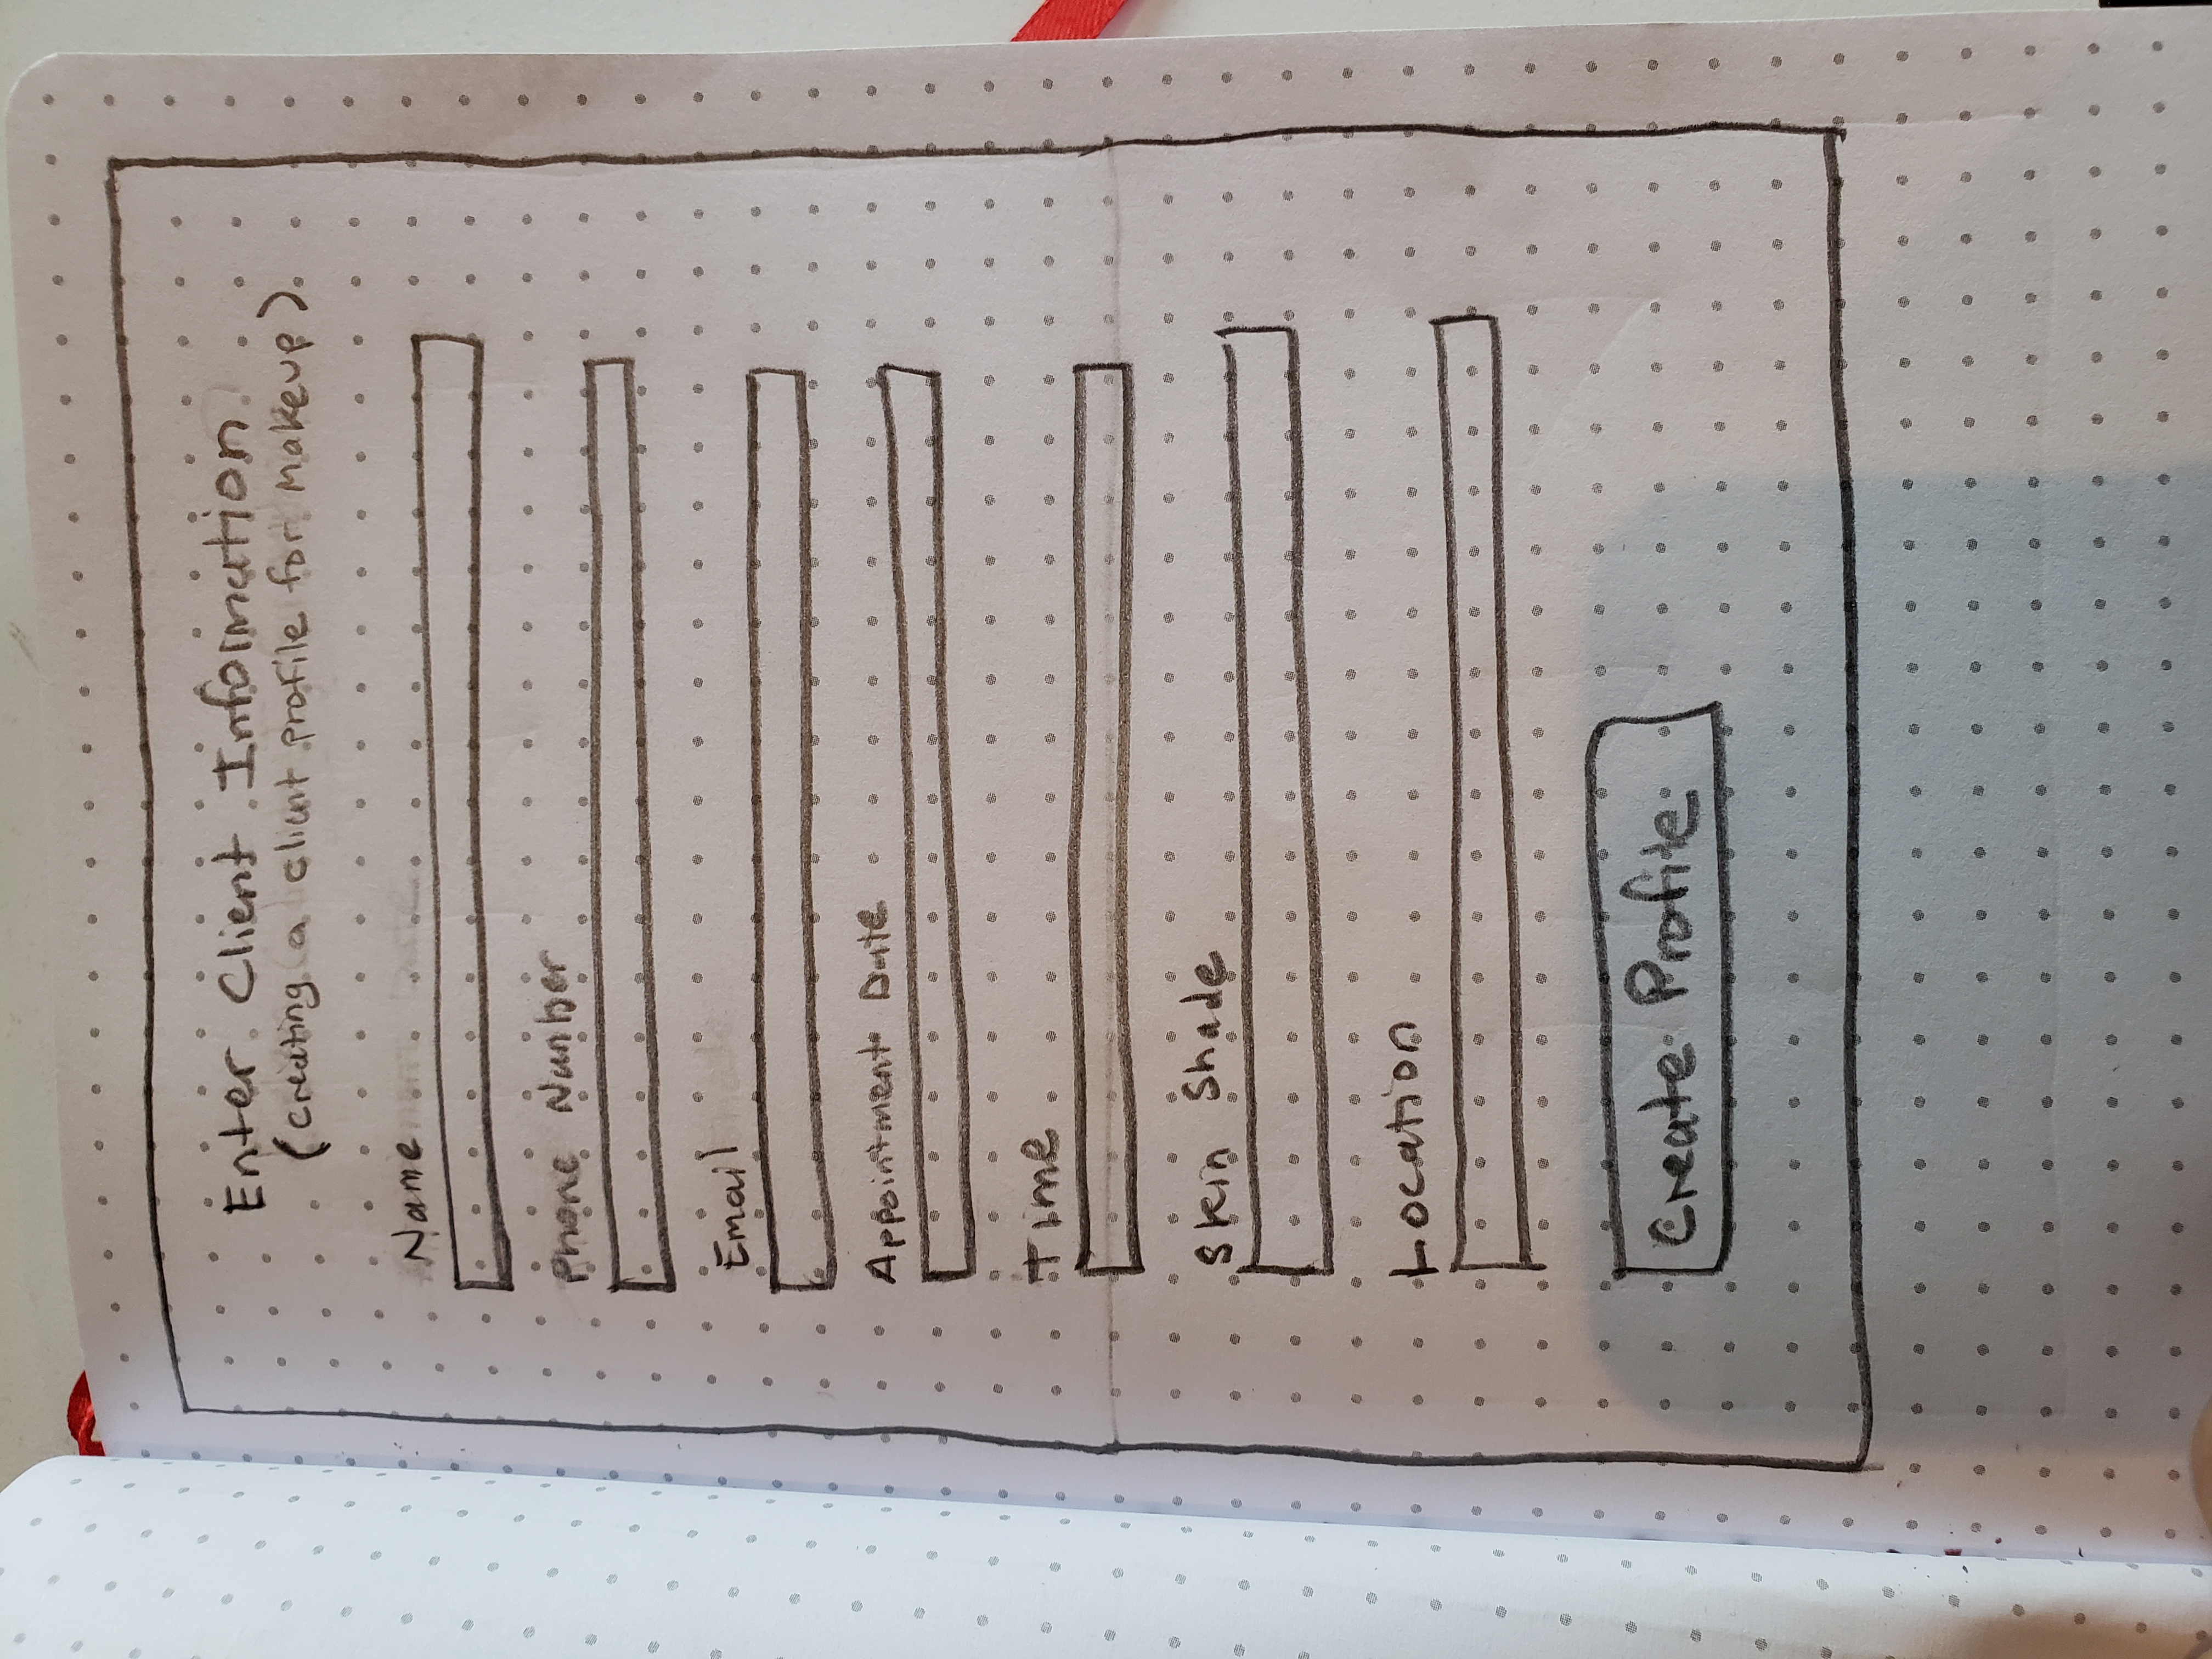 Enter Client Information
(creating a client profile for Makeup)
Name
Phone Number
Email
Appointment Date
Time
Skin Shade
Location
Create Profile